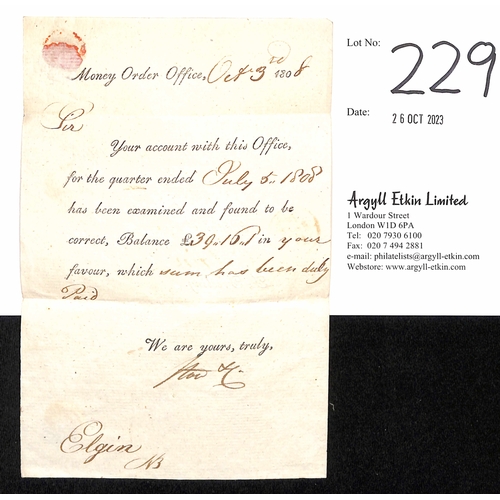 Money Order Office, Oct. 3rd 1808
Sir
Your account with this Office,
for the quarter ended July 5th 1808
has been examined and found to be
correct, Balance £39.16.1 in your
favour, which sum has been duly
Paid
We are yours, truly,
Elgin
NB
Lot No:
229
Date:
26 OCT 2023
Argyll Etkin Limited
1 Wardour Street
London W1D 6PA
Tel: 020 7930 6100
Fax: 020 7 494 2881
e-mail: philatelists@argyll-etkin.com
Webstore: www.argyll-etkin.com